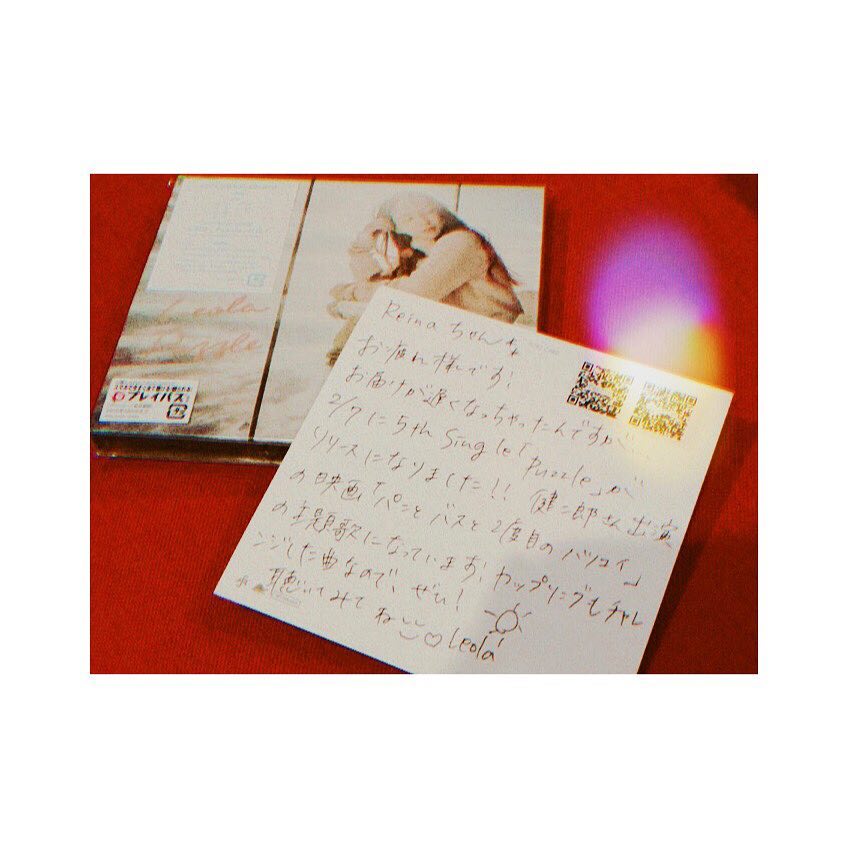 Leola
Puzzle
プレイパス
Reinaちゃん
お疲れ様です!
お届けが遅くなっちゃったんですが、
2/7に5th Single「Puzzle」が
リリースになりました!! 健二郎さん出演
の映画「パンとバスと2度目のハツコイ」
の主題歌になっています! カップリングもチャレ
ンジした曲なので、ぜひ!
聴いてみてね♡ Leola